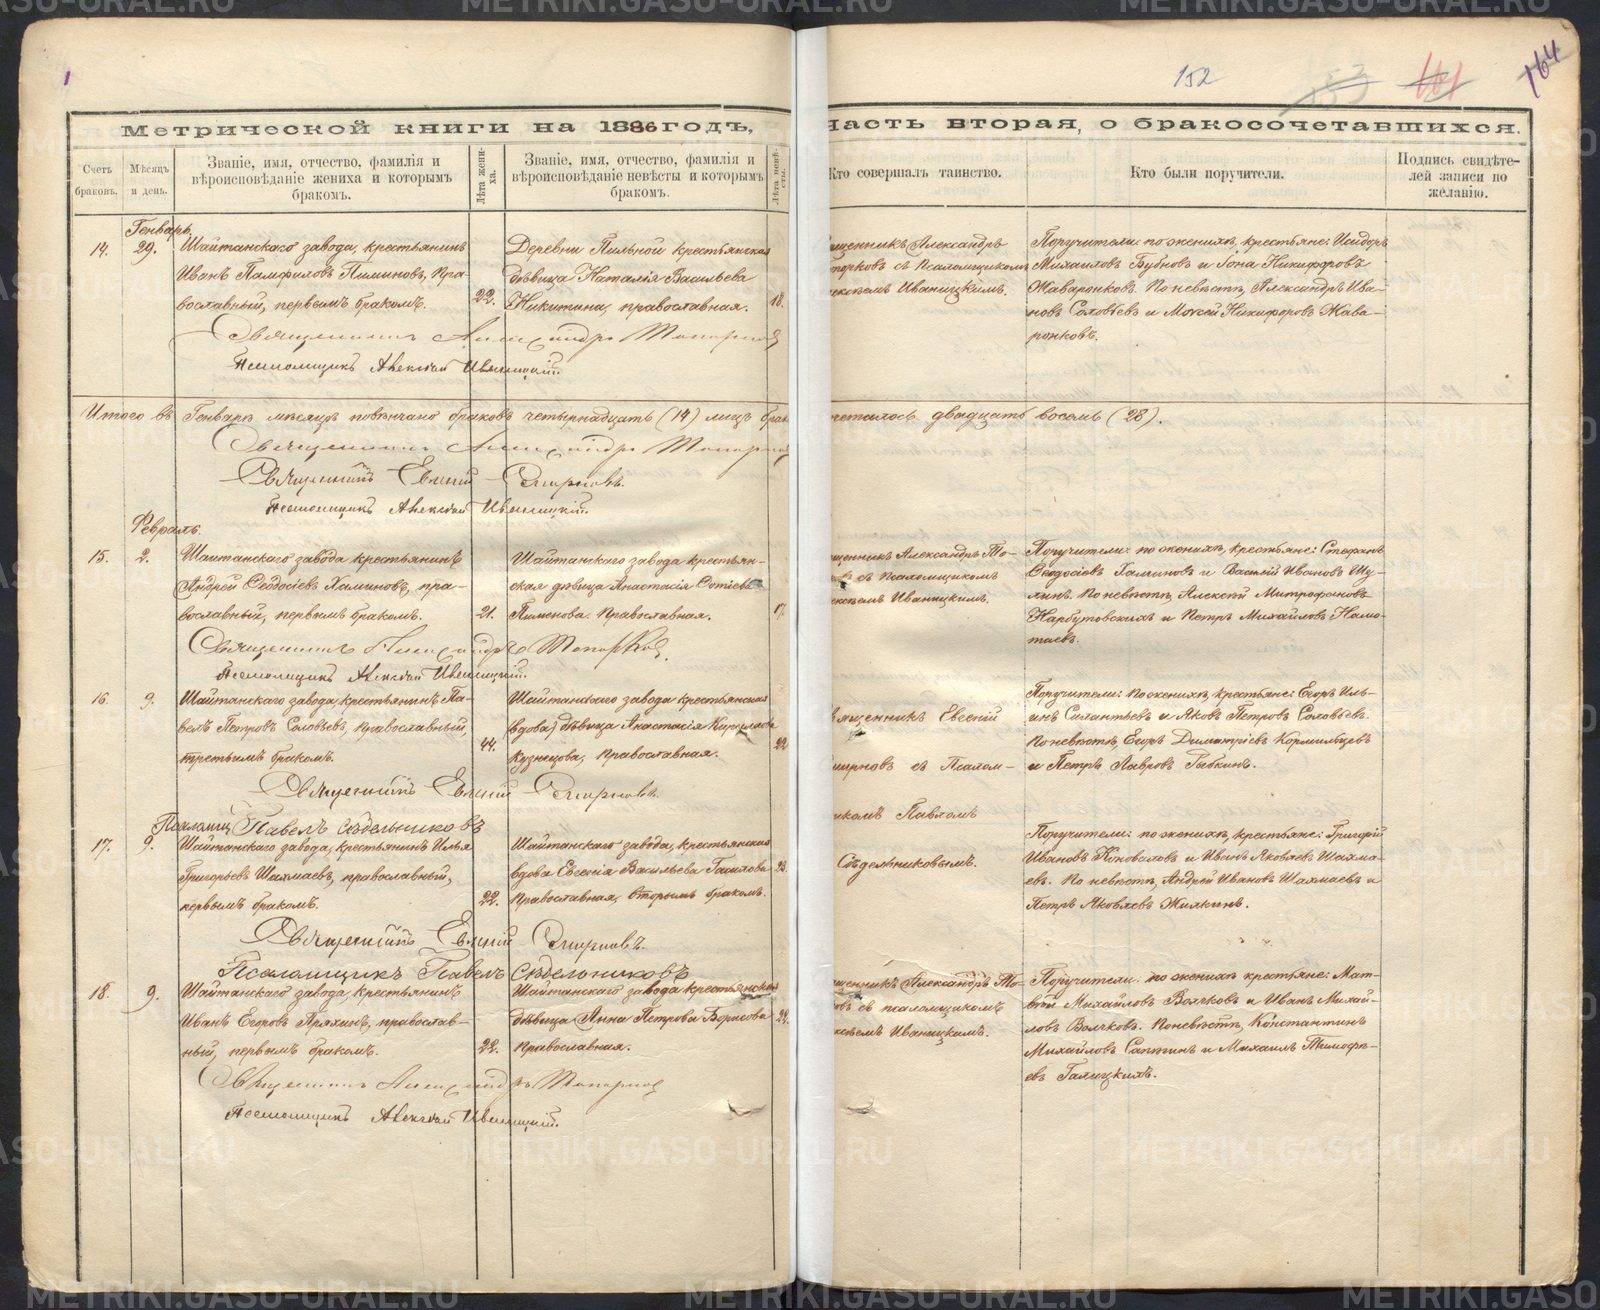 1
152
161
164
Метрической книги на 1886 годъ,
часть вторая, о бракосочетавшихся.
Счетъ браковъ.
Мѣсяцъ и день.
Званіе, имя, отчество, фамилія и
вѣроисповѣданіе жениха и которымъ
бракомъ.
Лѣта жениха.
Званіе, имя, отчество, фамилія и
вѣроисповѣданіе невѣсты и которымъ
бракомъ.
Лѣта невѣсты.
Кто совершалъ таинство.
Кто были поручители.
Подпись свидѣте-
лей записи по
желанію.
Генварь
14.
29.
Шайтанскаго завода, крестьянинъ
Иванъ Памфиловъ Пиминовъ, пра-
вославный, первымъ бракомъ.
22.
Деревни Пильной крестьянская
дѣвица Наталія Васильева
Никитина, православная.
18.
щенникъ Александръ
порковъ съ Псаломщикомъ
ексѣемъ Иваницкимъ.
Поручители: по женихѣ, крестьяне: Исидоръ
Михаиловъ Бубновъ и Іона Никифоровъ
Жаваронковъ. По невѣстѣ, Александръ Ива-
новъ Соловьевъ и Моисей Никифоровъ Жава-
ронковъ.
Священникъ Александръ Топорковъ
Псаломщикъ Алексѣй Иваницкій.
Итого въ Генварѣ мѣсяцѣ повѣнчано браковъ четырнадцать (14) лицъ брако
четалось двадцать восемь (28).
Священникъ Александръ Топорковъ
Священникъ Евгеній Смирновъ.
Псаломщикъ Алексѣй Иваницкій.
Февраль.
15.
2.
Шайтанскаго завода крестьянинъ
Андрей Ѳеодосіевъ Халиновъ, пра-
вославный, первымъ бракомъ.
21.
Шайтанскаго завода крестьян-
ская дѣвица Анастасія
Пименова Православная.
17.
щенникъ Александръ То-
съ Псаломщикомъ
ексѣемъ Иваницкимъ.
Поручители: по женихѣ, крестьяне: Стефанъ
Ѳеодосіевъ и Василій Ивановъ Шу-
По невѣстѣ, Алексѣй Митрофановъ
Нарбутовскихъ и Петръ Михайловъ
Священникъ Александръ Топорковъ.
Псаломщикъ Алексѣй Иваницкій.
16.
9.
Шайтанскаго завода, крестьянинъ Па-
велъ Петровъ Соловьевъ, Православный,
третьимъ бракомъ.
44.
Шайтанскаго завода крестьянская
(вдова) дѣвица Анастасія Кирилова
Кузнецова, Православная.
22
вященникъ Евгеній
мирновъ съ Псалом-
икомъ Павломъ
Сѣдельниковымъ.
Поручители: По женихѣ, крестьяне: Егоръ Иль-
инъ Силантьевъ и Яковъ Петровъ Соловьевъ.
По невѣстѣ, Егоръ Димитріевъ Кормильцевъ
и Петръ Лавровъ
Священникъ Евгеній Смирновъ.
Псаломщ. Павелъ Сѣдельниковъ
17.
9.
Шайтанскаго завода, крестьянинъ Илья
Григорьевъ Шахмаевъ, православный,
первымъ бракомъ.
22.
Шайтанскаго завода, крестьянская
вдова Евгенія Васильева
Православная, вторымъ бракомъ.
23.
Поручители: по женихѣ, крестьяне: Григорій
Ивановъ Коноваловъ и Иванъ Яковлевъ Шахма-
евъ. По невѣстѣ, Андрей Ивановъ Шахмаевъ и
Петръ Яковлевъ Жилкинъ.
Священникъ Евгеній Смирновъ.
Псаломщикъ Павелъ Сѣдельниковъ
18.
9.
Шайтанскаго завода, крестьянинъ
Иванъ Егоровъ Пряхинъ, православ-
ный, первымъ бракомъ.
22.
Шайтанскаго завода крестьянская
дѣвица Анна Петрова Борисова
Православная.
22.
щенникъ Александръ То-
овъ съ псаломщикомъ
ксѣемъ Иваницкимъ.
Поручители: по женихѣ крестьяне: Мат-
вѣй Михайловъ Волчковъ и Иванъ Михай-
ловъ Волчковъ. По невѣстѣ, Константинъ
Михайловъ Сапегинъ и Михаилъ Тимоѳе-
евъ Галицкихъ.
Священникъ Александръ Топорковъ
Псаломщикъ Алексѣй Иваницкій.
METRIKI.GASO-URAL.RU